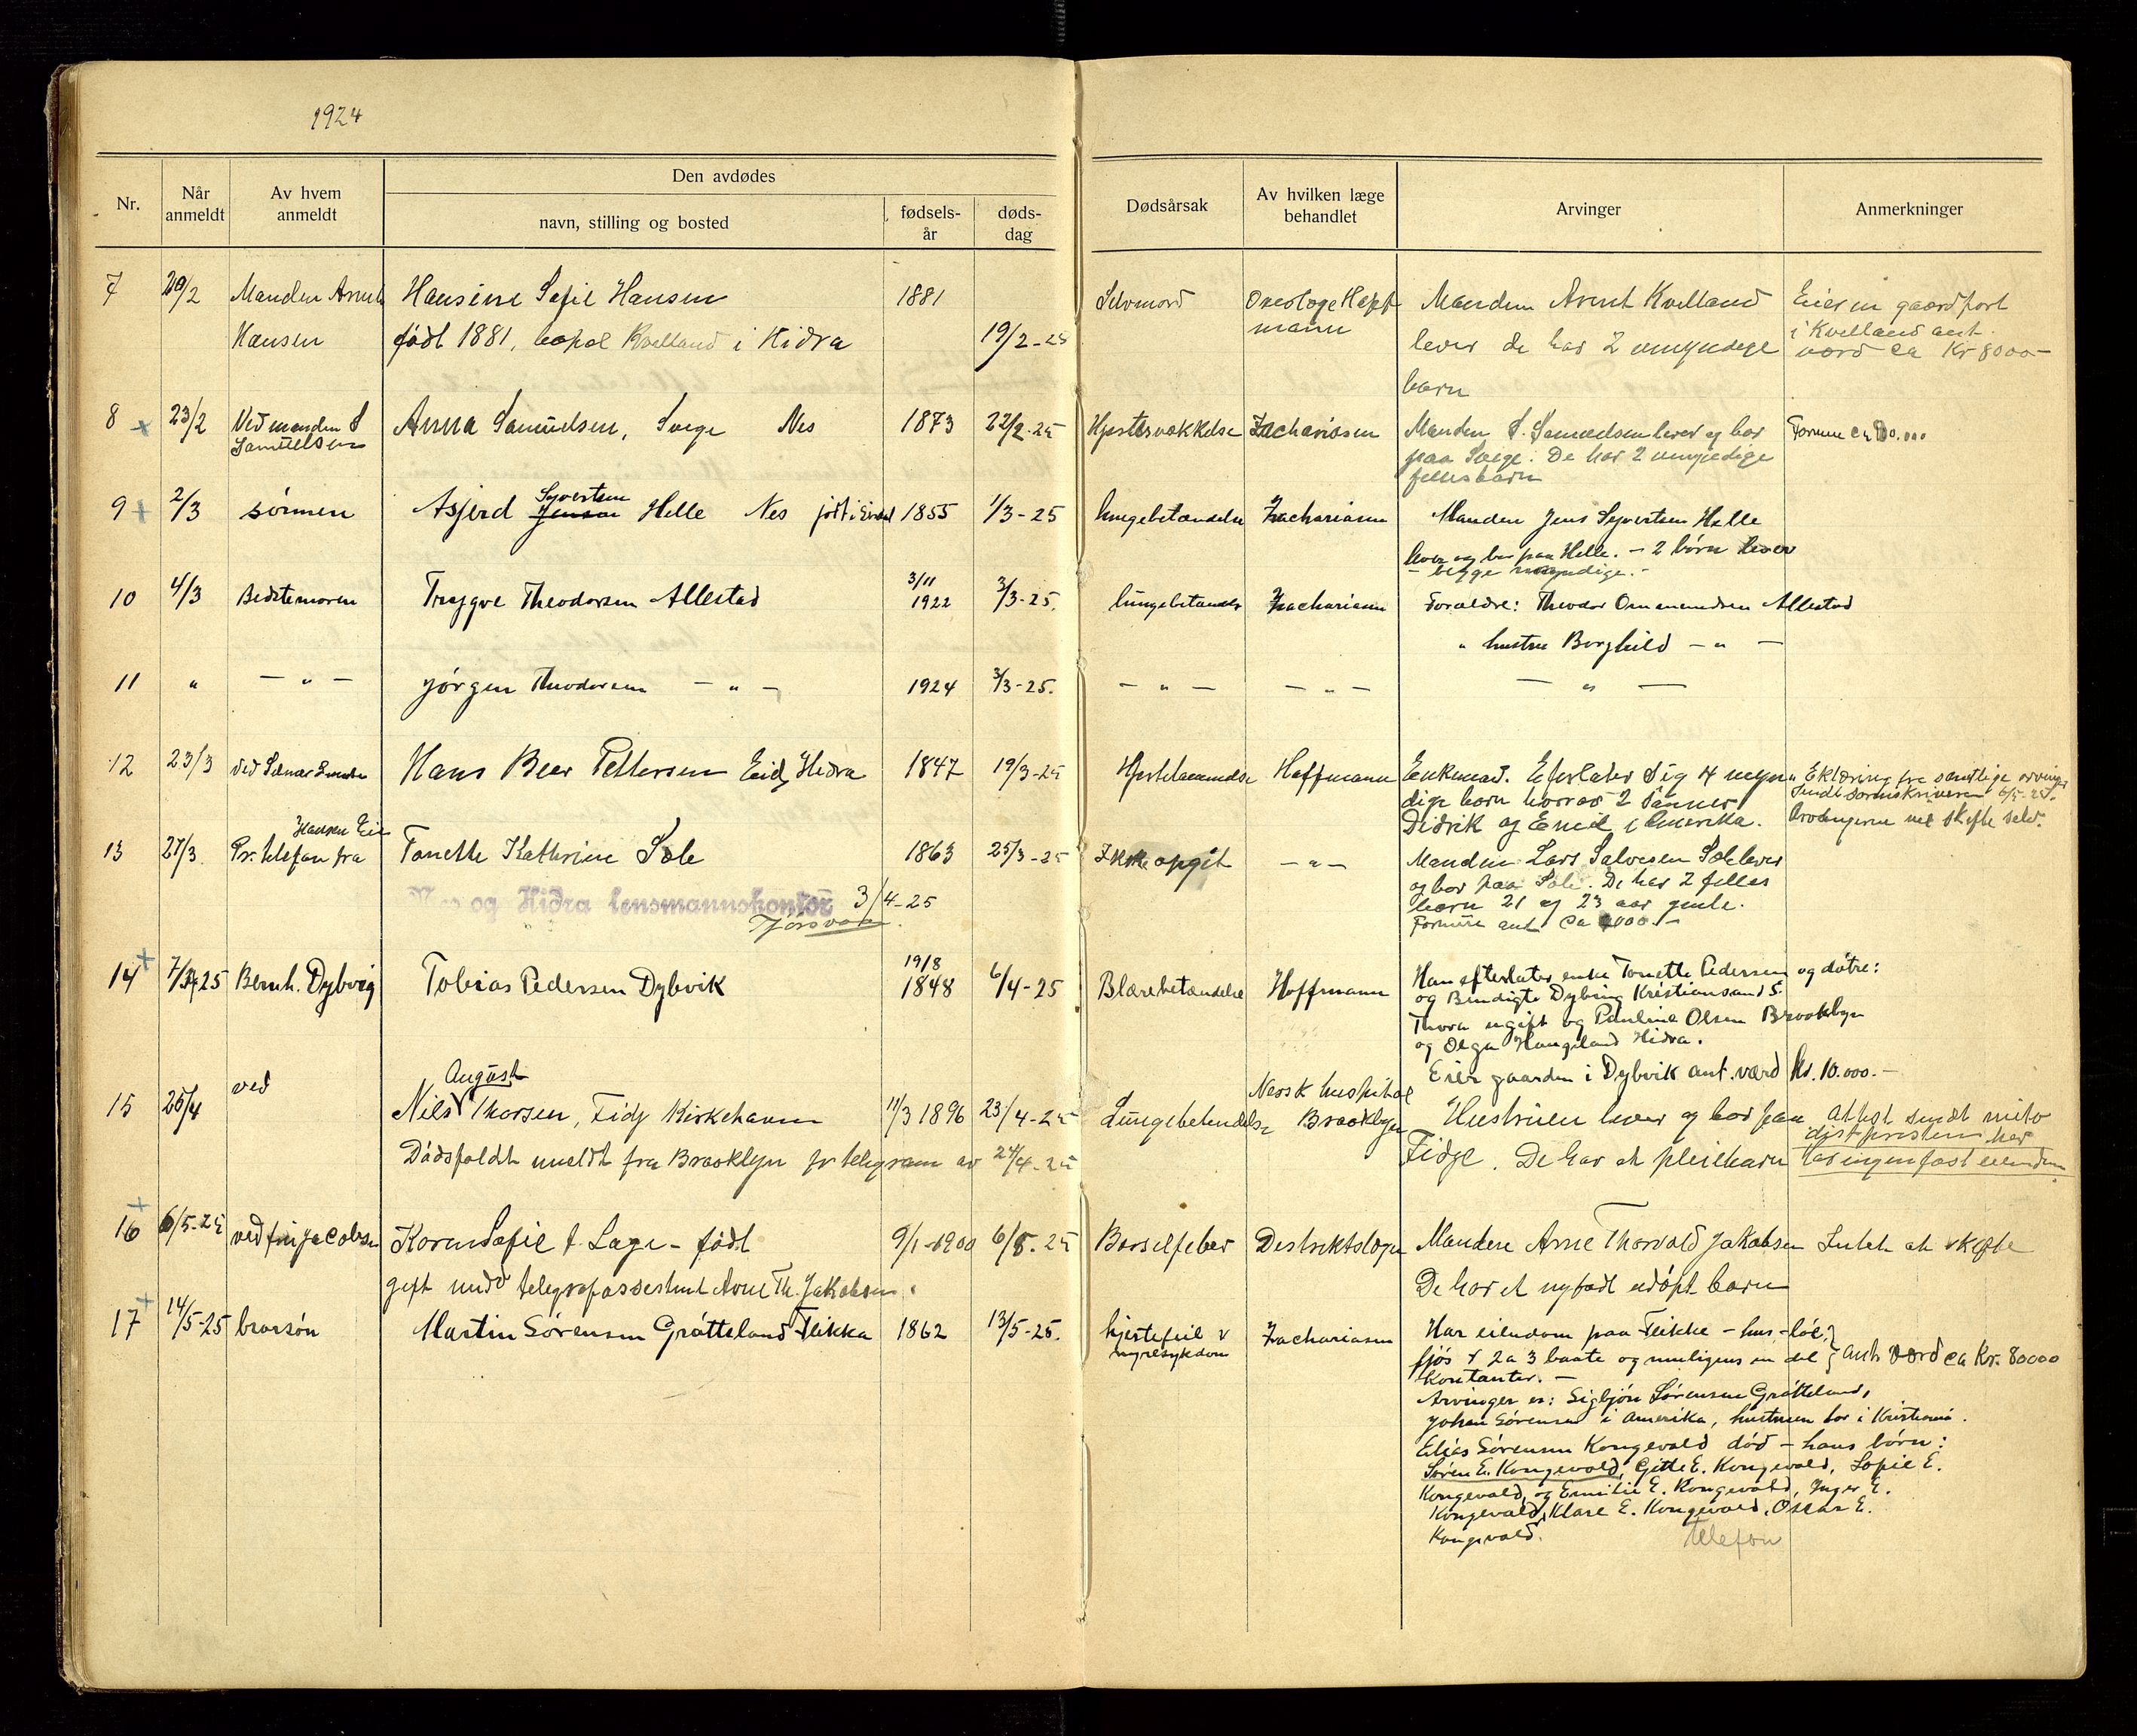 1924
Nr.
Når anmeldt
Av hvem anmeldt
Den avdødes
navn, stilling og bosted
fødsels-år
døds-dag
Dødsårsak
Av hvilken læge behandlet
Arvinger
Anmerkninger
7 20/2 Manden Arent Hansine Sofie Hansen 1881 Selvmord Manden Arent Kvelland Eier en gaardpart
Hansen født 1881, bopæl Kvelland i Hidra 19/2-25 mann lever de har 2 umyndige i Kvelland ant.
værd ca Kr 8000-
barn
8 23/2 Ved manden S Anna Samuelsen, Svege Nes 1873 22/2-25 Hjertesvækkelse Zachariasen Manden S. Samuelsen lever og bor Formue ca 80.000
Samuelsen paa Svege. De har 2 umyndige
fellesbarn
9 2/3 sønnen Asjerd Jensen Syvertsen Helle Nes født i Eiken 1855 1/3-25 lungebetændelse Zachariasen Manden Jens Syvertsen Helle
lever og bor paa Helle. - 2 børn lever
begge myndige.-
10 4/3 Bedstemoren Trygve Theodorsen Allestad 3/11 1922 3/3-25. lungebetændelse Zachariasen Forældre: Theodor Ommundsen Allestad
" hustru Borghild - " -
11 " - " - Jørgen Theodorsen - " - 1924 3/3-25. - " - - " - - " -
12 23/3 Hans Beer Pettersen Eid, Hidra 1847 19/3-25 Hjertelammelse Hoffmann Enkemand. Efterlater sig 4 myn- Erklæring fra samtlige arvinger
dige barn hvorav 2 sønner sendt sorenskriveren 6/5-25.
Didrik og Emil i Amerika. Arvingerne vil skifte selv.
13 27/3. Pr. telefon fra Hansen Eie Tonette Kathrine Sole 1863 25/3-25 Ikke opgit - " - Manden Lars Salvesen Sole lever
og bor paa Sole. De har 2 felles
barn 21 og 23 aar gamle.
Nes og Hidra lensmannskontor 3/4-25
Formue ant ca
14 7/4 25 Bernh. Dybvig Tobias Pedersen Dybvik 19/8 1848 6/4-25 Blærebetændelse Hoffmann Han efterlater enke Tonette Pedersen og døtre:
og Bendigte Dybvig Kristiansand S.
Thora ugift og Pauline Olsen Brooklyn
og Olga Haugeland Hidra.
Eier gaarden i Dybvik ant. værd Kr. 10.000.-
15 25/4 ved Nils August Thorsen, Fidje Kirkehavn 11/3 1896 23/4-25 Lungebetendelse Norsk hospital Brooklyn Hustruen lever og bor paa Attest sendt meto
distpresten her
Dødsfaldet meldt fra Brooklyn pr telegram av 24/4-25 Fidge. De har et pleiebarn Har ingen fast eiendom
16 6/5-25 Karen Sofie f. Lage - født 9/1-1900 6/5.25 Barselfeber Destriktslægen Manden Arne Thorvald Jakobsen Intet at skifte
gift med telegrafassestent Arne Th. Jakobsen. De har et nyfødt udøpt barn
17 14/5-25 brorsøn Martin Sørensen Gråtteland Flikka 1862 13/5-25. hjertefeil & nyresykdom Zachariasen Har eiendom paa Flikke - hus,-løe,
fjøs & 2 a 3 baate og muligens en del } ant. værd ca Kr. 80000
kontanter. -
Arvinger er: Sigbjørn Sørensen Gråtteland,
Johan Sørensen i Amerika, hustruen bor i Kristiania.
Elias Sørensen Kongevold død - hans børn:
Søren E. Kongevold, Gitte E. Kongevold, Sofie E.
Kongevold, og Emilie E. Kongevold, Inger E.
Kongevold, Klare E. Kongevold, Oscar E.
Kongevold.
telefon